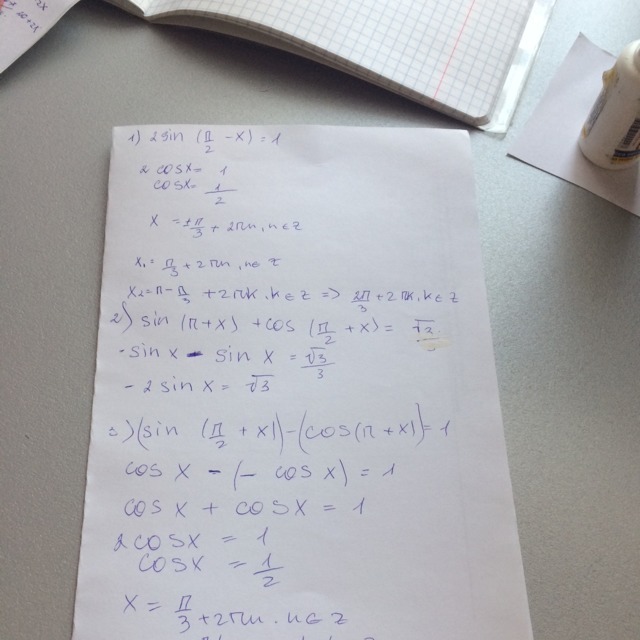 1) 2sin (π/2 - x) = 1
2 cosx = 1
cosx = 1/2
x = ±π/3 + 2πn, n∈z
x₁ = π/3 + 2πn, n∈ z
x₂ = π - π/3 + 2πk, k∈z => 2π/3 + 2πk, k∈z
2) sin (π+x) + cos (π/2 + x) =
-sin x - sin x = √3/3
- 2 sin x = √3
3) (sin (π/2 + x)) - (cos(π + x)) = 1
cos x - (- cos x) = 1
cos x + cos x = 1
2 cosx = 1
cosx = 1/2
x = π/3 + 2πn. n∈z